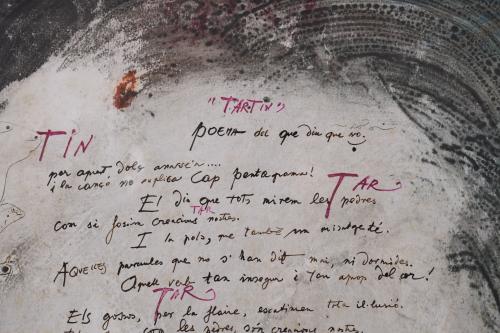 "TARTIN"
POEMA del que diu que no.
TIN
per aquest dolç
i la cançó no suplica cap pentagrama!
TAR
El dia que tots mirem les pedres
TAR
com si fossin creacions nostres.
I la pols, me també un missatge.
AQUELLES paraules que no s'han dit mai, ni dormides.
Aquell vent tan insegur i tan aprop del cor!
TAR
Els gossos, per la flaire, escatimen tota il·lusió.
com les pedres, són creacions nostres.